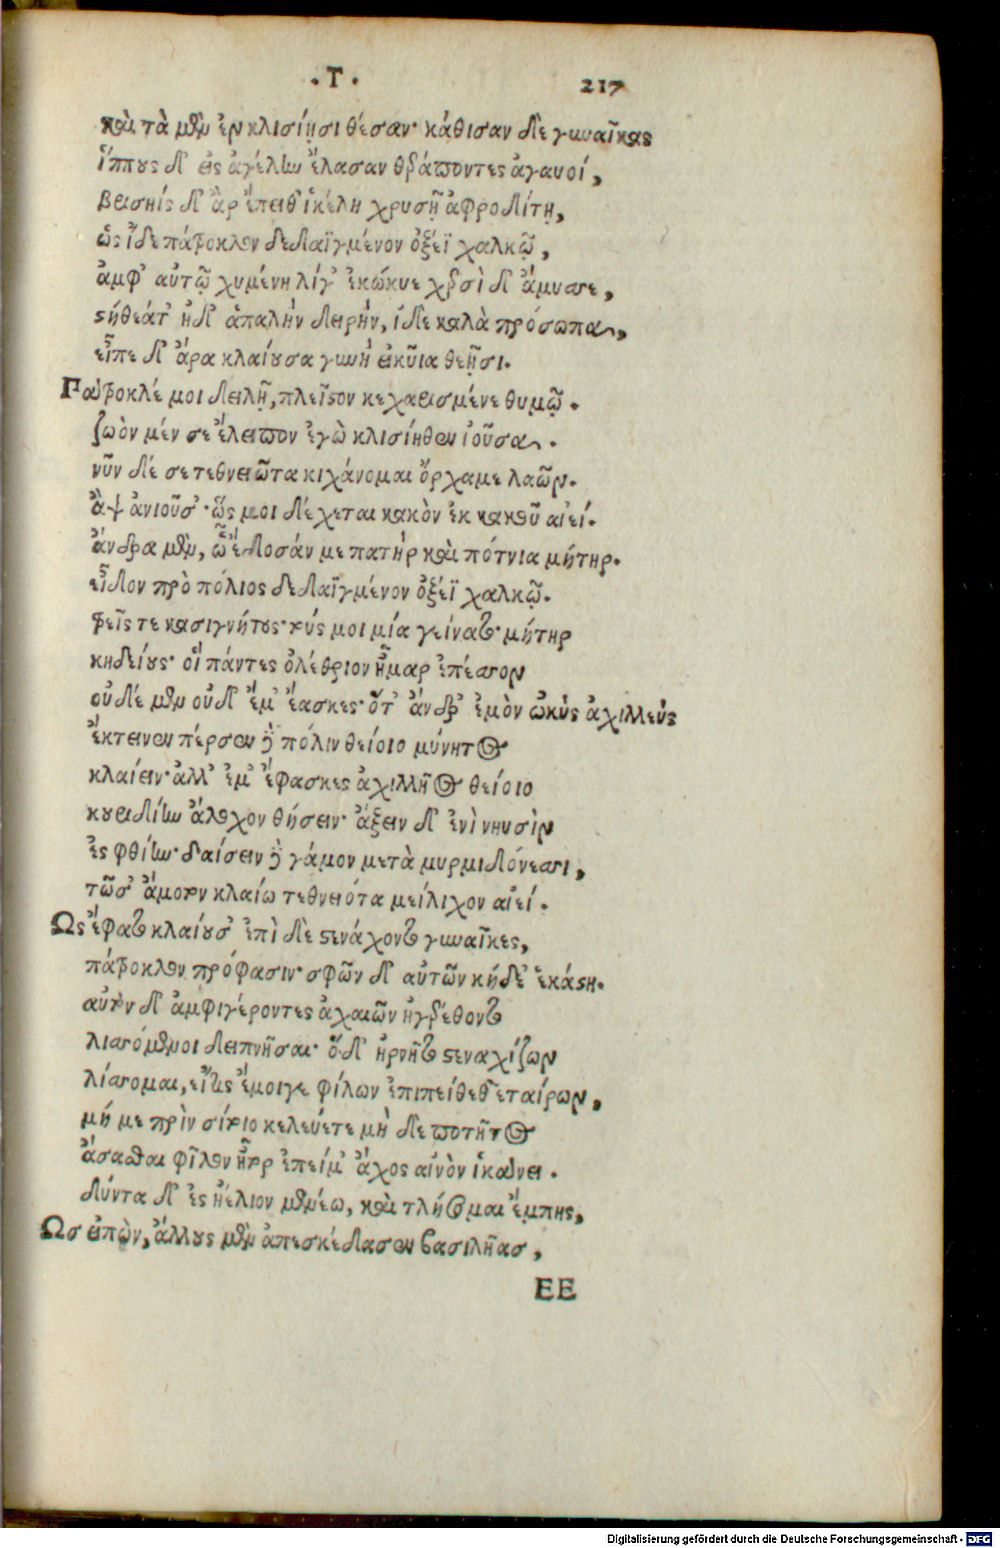 .Τ. 217
καὶ τὰ μὲν ἐν κλισίῃσι θέσαν· κάθισαν δὲ γυναῖκας
ἵππους δ' εἰς ἀγέλην ἔλασαν θεράποντες ἀγαυοί,
βρισηὶς δ' ἂρ ἔπειθ' ἱκέλη χρυσῇ ἀφροδίτῃ,
ὡς ἴδε πάτροκλον δεδαϊγμένον ὀξέϊ χαλκῷ,
ἀμφ' αὐτῷ χυμένη λίγ' ἐκώκυε χερσὶ δ' ἄμυσσε,
στήθεάτ' ἠδ' ἁπαλὴν δειρὴν, ἰδὲ καλὰ πρόσωπα,
εἶπε δ' ἄρα κλαίουσα γυνὴ εἰκυῖα θεῇσι.
Πάτροκλέ μοι δειλῇ, πλεῖστον κεχαρισμένε θυμῷ.
ζωὸν μέν σε ἔλειπον ἐγὼ κλισίηθεν ἰοῦσα.
νῦν δέ σε τεθνειῶτα κιχάνομαι ὄρχαμε λαῶν.
ἂψ ἀνιοῦσ'· ὥς μοι δέχεται κακὸν ἐκ κακοῦ αἰεί.
ἄνδρα μὲν, ᾧ ἔδοσάν με πατὴρ καὶ πότνια μήτηρ.
εἶδον πρὸ πόλιος δεδαϊγμένον ὀξέϊ χαλκῷ.
τρεῖς τε κασιγνήτους· τούς μοι μία γείνατο μήτηρ
κηδείους· οἳ πάντες ὀλέθριον ἦμαρ ἐπέσπον
οὐδέ μὲν οὐδ' ἔμ' ἔασκες· ὅτ' ἄνδρ' ἐμὸν ὠκὺς ἀχιλλεὺς
ἔκτεινεν πέρσεν δὲ πόλιν θείοιο μύνητος
κλαίειν· ἀλλ' ἐμ' ἔφασκες ἀχιλλῆος θείοιο
κουριδίην ἄλοχον θήσειν· ἄξειν δ' ἐνὶ νηυσὶν
ἐς φθίην· δαίσειν δὲ γάμον μετὰ μυρμιδόνεσσι,
τῶσ' ἄμοτον κλαίω τεθνειότα μείλιχον αἰεί.
Ὣς ἔφατο κλαίουσ' ἐπὶ δὲ στενάχοντο γυναῖκες,
πάτροκλον πρόφασιν· σφῶν δ' αὐτῶν κήδε' ἑκάστη.
αὐτὸν δ' ἀμφιγέροντες ἀχαιῶν ἠγερέθοντο
λισσόμενοι δειπνῆσαι· ὁ δ' ἠρνεῖτο στεναχίζων
λίσσομαι, εἴ τις ἔμοιγε φίλων ἐπιπείθεθ' ἑταίρων,
μή με πρὶν σίτοιο κελεύετε μὴ δὲ ποτῆτος
ἄσασθαι φίλον ἦτορ ἐπεί μ' ἄχος αἰνὸν ἱκάνει.
δύντα δ' ἐς ἠέλιον μενέω, καὶ τλήσομαι ἔμπης,
Ὣσ εἰπὼν, ἄλλους μὲν ἀπεσκέδασεν βασιλῆασ,
ΕΕ
Digitalisierung gefördert durch die Deutsche Forschungsgemeinschaft - DFG